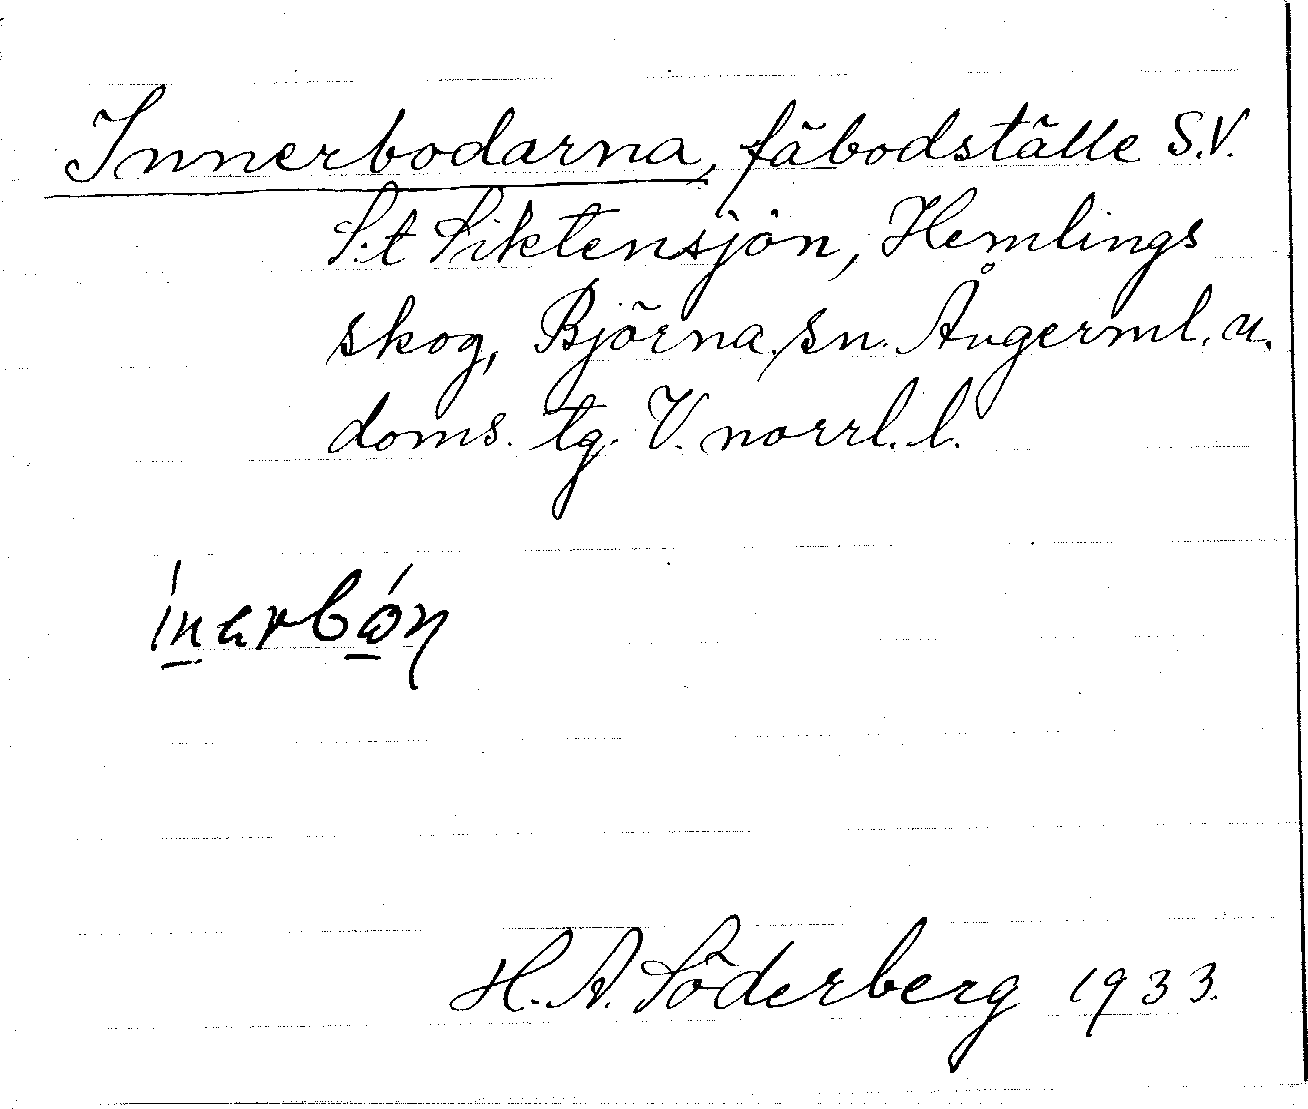 Innerbodarna, fäbodställe S.V.
S.t Siktensjön, Hemlings
skog, Björna sn. Ångerml. u.
doms. tg. V. norrl. l.
H. A. Söderberg 1933.